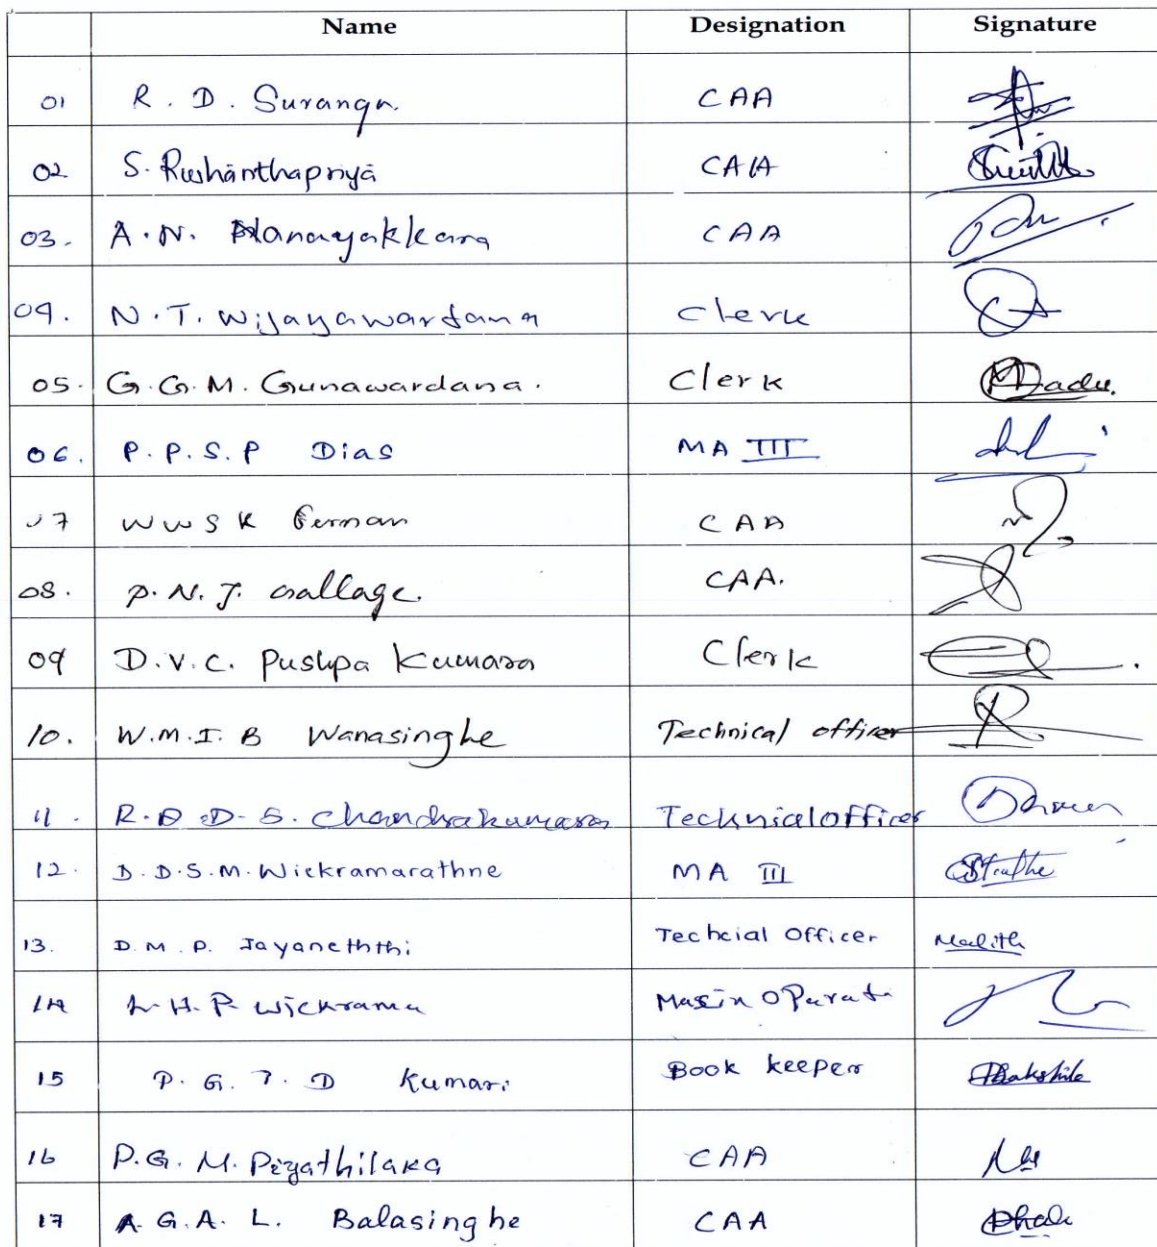 Name Designation Signature
01 R. D. Suranga CAA
02 S. Rushanthapriya CAA
03. A. N. Nanayakkara CAA
04. N. T. Wijayawardana Clerk
05. G. G. M. Gunawardana. Clerk Madu.
06. P. P. S. P Dias MA III
07 W W S K CAA
08. P. N. J. Gallage. CAA.
09 D. V. C. Pushpa Kumara Clerk
10. W. M. I. B Wanasinghe Technical officer
11. R. D. D. S. Chandrakumara Technialofficer
12. D. D. S. M. Wickramarathne MA III
13. D. M. P. Jayaneththi Techcial Officer Malith
14 L. H. P Wickrama Masin Oparati
15 P. G. T. D Kumari Book keeper
16 P. G. M. Piyathilaka CAA
17 A. G. A. L. Balasinghe CAA